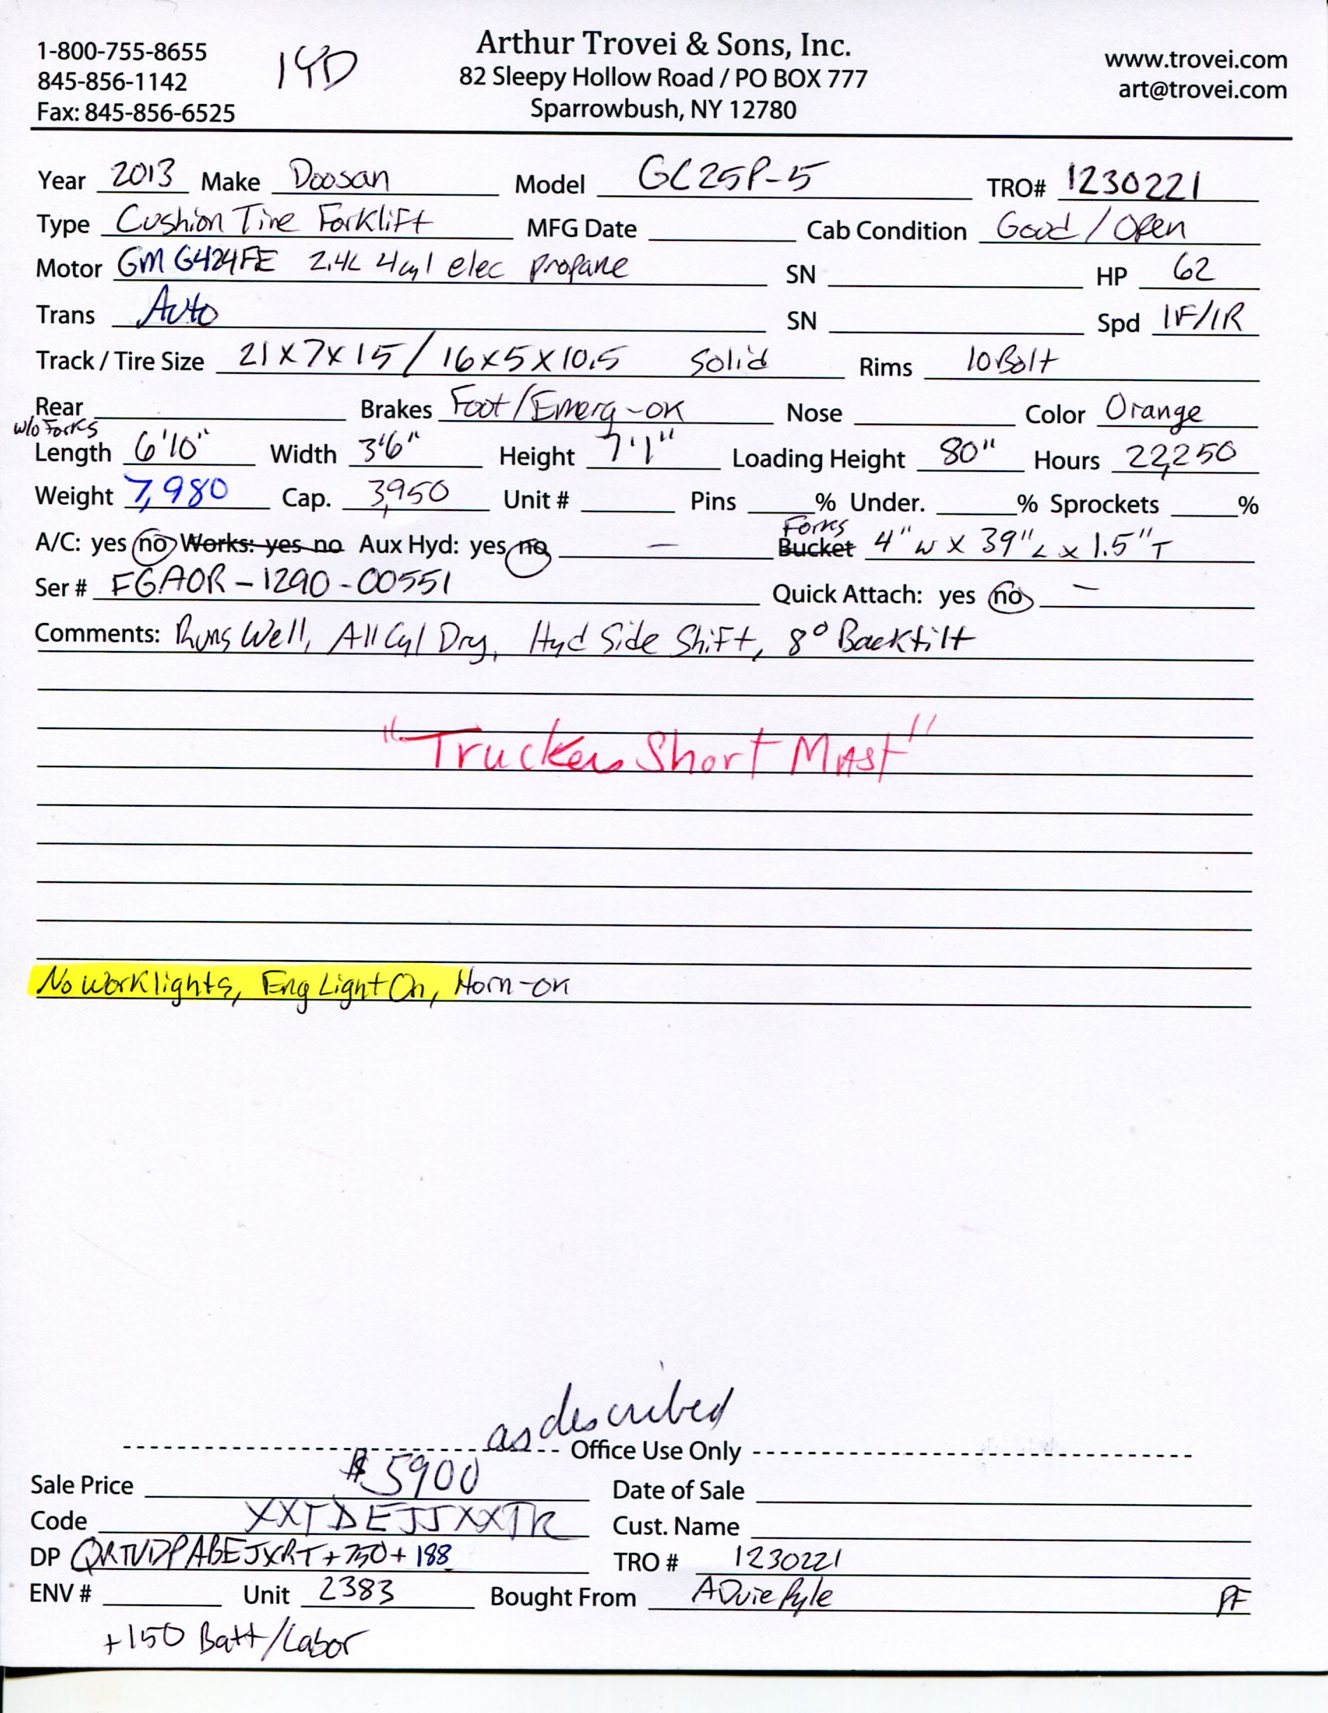 1-800-755-8655
845-856-1142
Fax: 845-856-6525
Arthur Trovei & Sons, Inc.
82 Sleepy Hollow Road / PO BOX 777
Sparrowbush, NY 12780
www.trovei.com
art@trovei.com
Year 2013 Make Doosan Model GC25P-5 TRO# 1230221
Type Cushion Tire Forklift MFG Date Cab Condition Good / Open
Motor GM G424FE 2.4L 4cyl elec propane SN HP 62
Trans Auto SN Spd 1F/1R
Track / Tire Size 21x7x15 / 16x5x10.5 Solid Rims 10 Bolt
Rear Brakes Foot/Emerg-ok Nose Color Orange
w/o Forks
Length 6'10" Width 3'6" Height 7'1" Loading Height 80" Hours 22,250
Weight 7,980 Cap. 3,950 Unit # Pins % Under. % Sprockets %
Forks
A/C: yes no Works: yes no Aux Hyd: yes no — Bucket 4" W x 39" L x 1.5" T
Ser # FGA0R-1290-00551 Quick Attach: yes no —
Comments: Runs Well, All Cyl Dry, Hyd Side Shift, 8° Backtilt
"Truckers Short Mast"
No worklights, Eng Light On, Horn-ok
as described
Office Use Only
Sale Price $5900 Date of Sale
Code XXTDEJJXXTR Cust. Name
DP QRTVDPABEJXRT+750+188 TRO # 1230221
ENV # Unit 2383 Bought From Pyle PF
+150 Batt/Labor